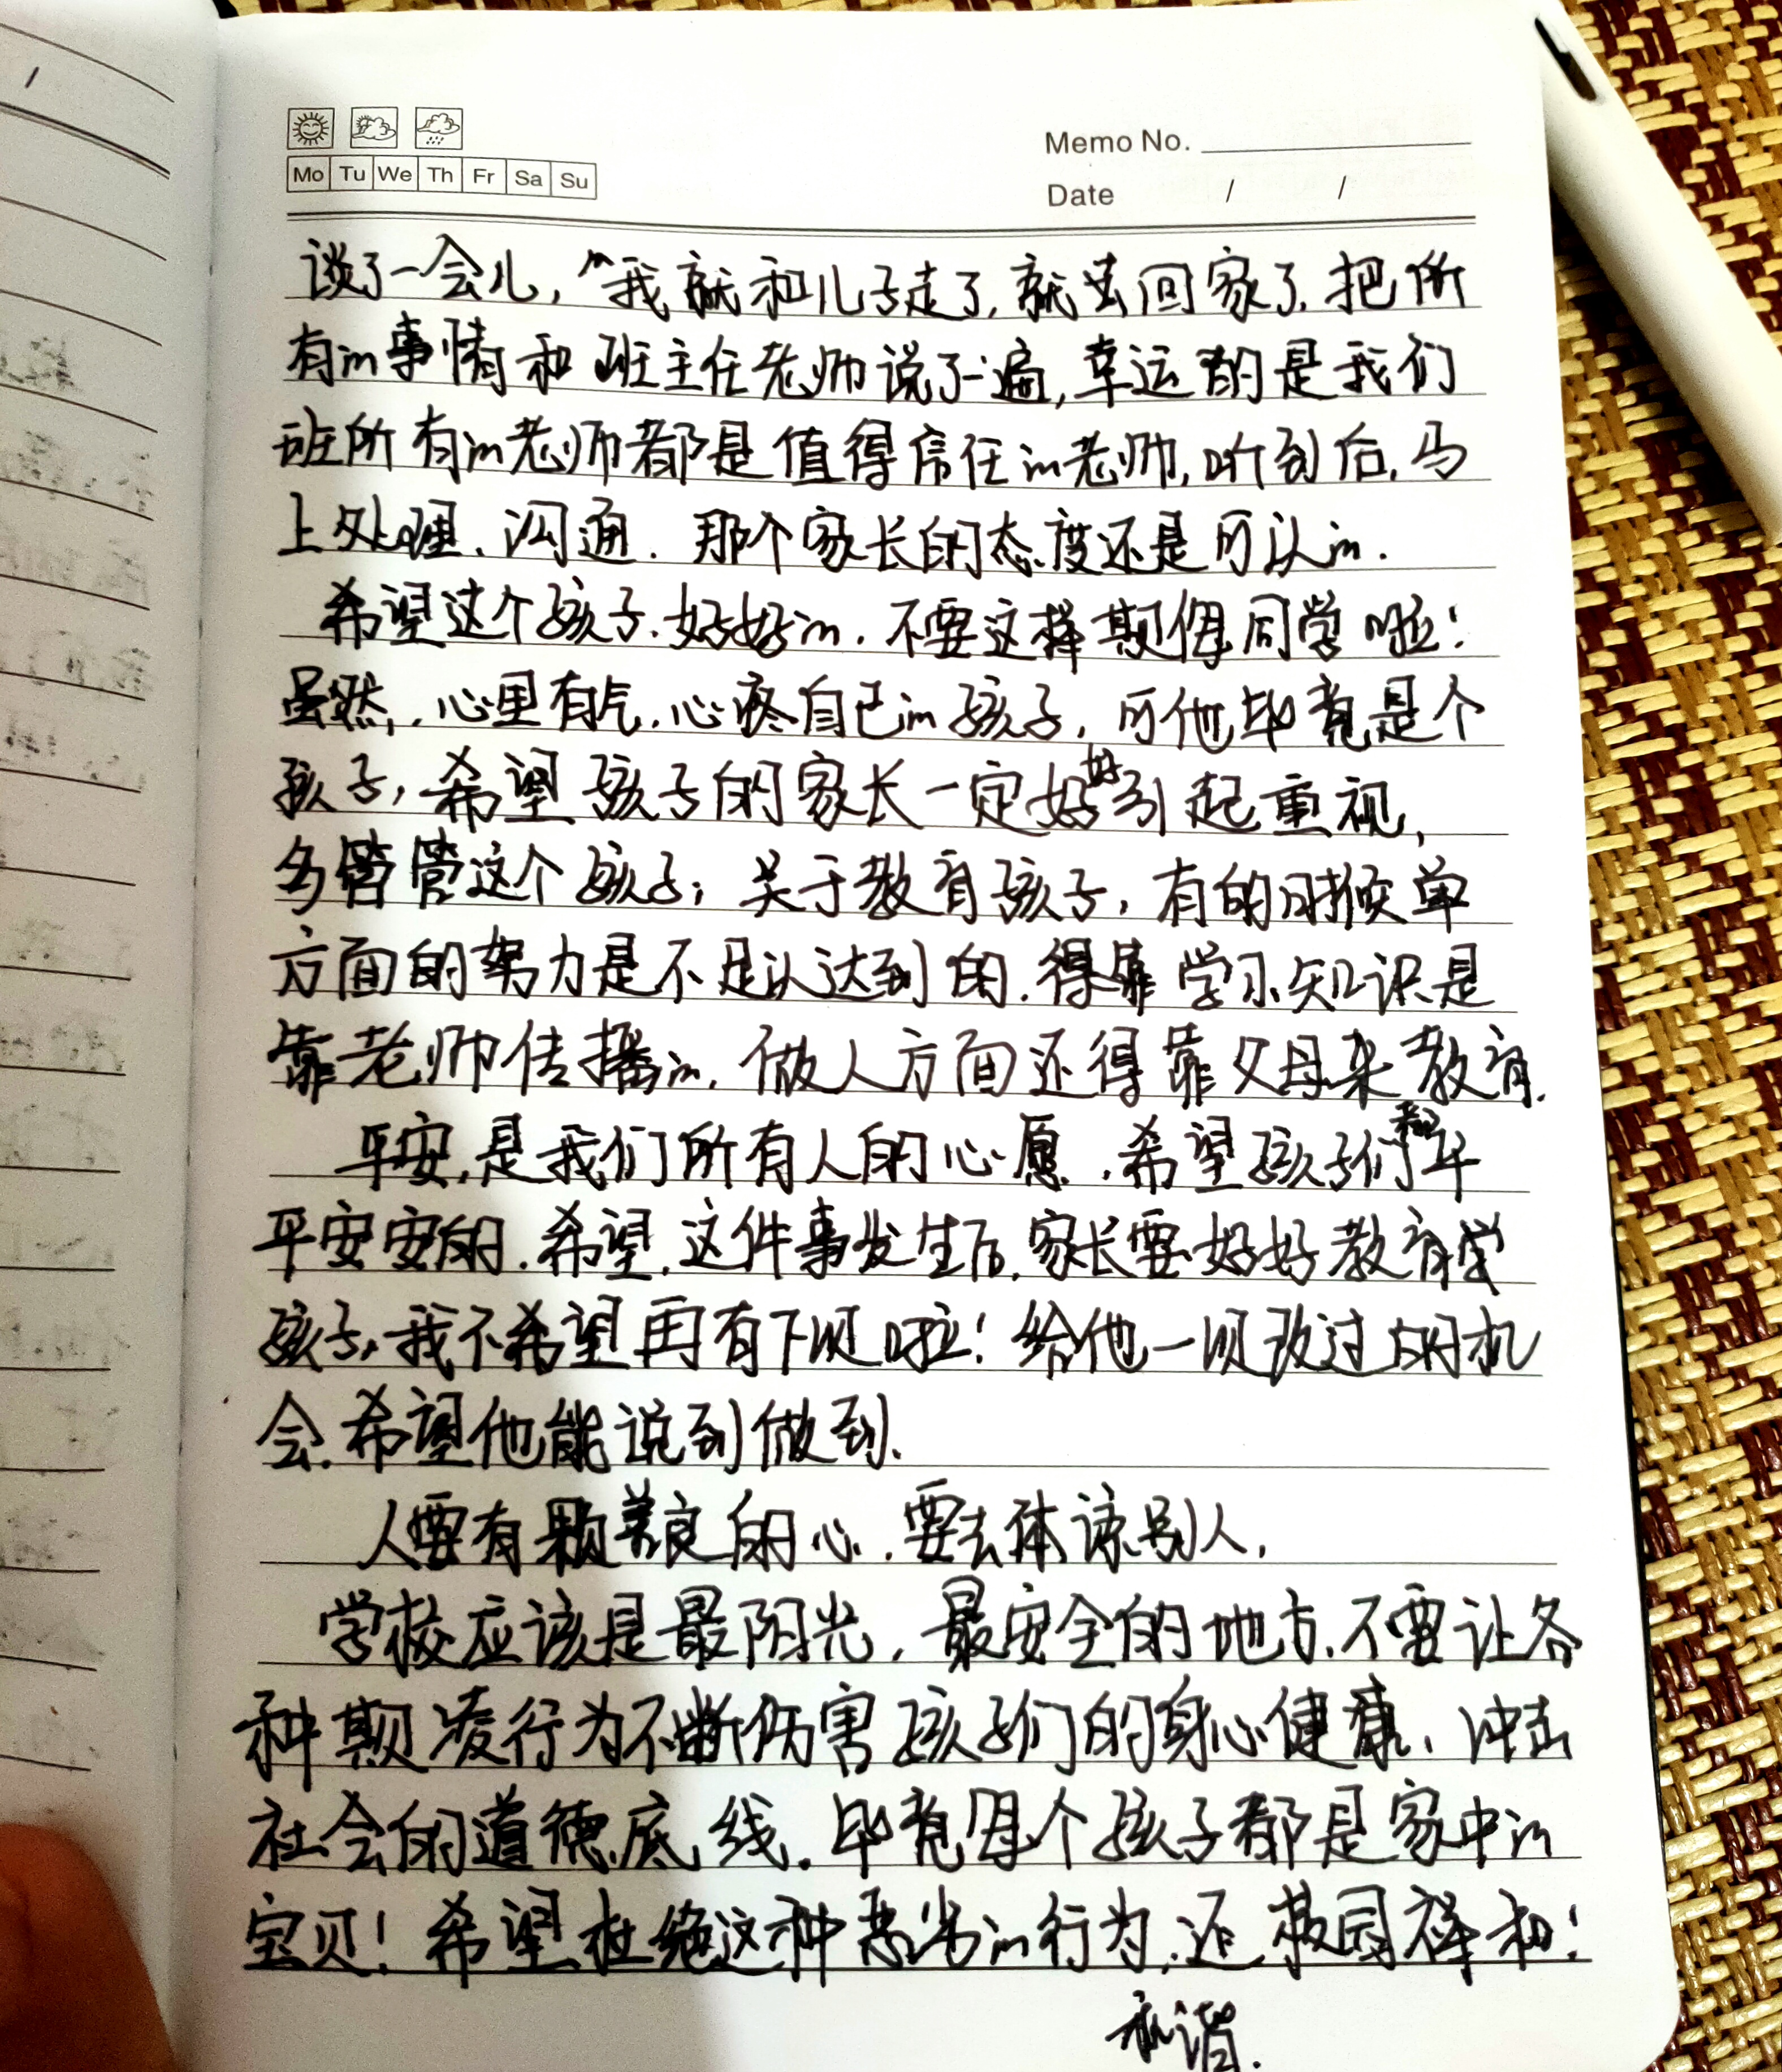 Mo Tu We Th Fr Sa Su
Memo No.
Date / /
谈了一会儿，我就和儿子走了，就去回家了，把所
有的事情和班主任老师说了一遍，幸运的是我们
班所有的老师都是值得信任的老师，听到后，马
上处理、沟通．那个家长的态度还是可以的．
希望这个孩子．好好的．不要这样欺侮同学啦！
虽然，心里有气，心疼自己的孩子，可他毕竟是个
孩子，希望孩子的家长一定好好引起重视，
多管管这个孩子；关于教育孩子，有的时候单
方面的努力是不足以达到的．得靠学习知识是
靠老师传播的，做人方面还得靠父母来教育．
平安，是我们所有人的心愿，希望孩子们都平
平安安的．希望，这件事发生后，家长要好好教育
孩子，我不希望再有下次啦！给他一次改过的机
会．希望他能说到做到．
人要有颗善良的心，要去体谅别人，
学校应该是最阳光，最安全的地方，不要让各
种欺凌行为不断伤害孩子们的身心健康、冲击
社会的道德底线．毕竟每个孩子都是家中的
宝贝！希望杜绝这种恶劣的行为，还校园祥和！
和谐．